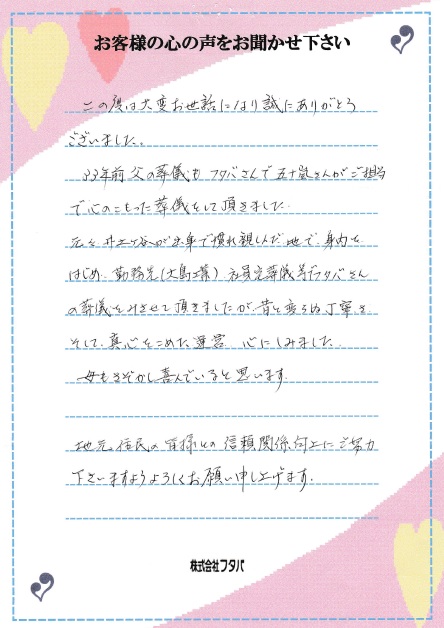 お客様の心の声をお聞かせ下さい
この度は大変お世話になり誠にありがとう
ございました。
33年前父の葬儀も フタバさんで五十嵐さんがご担当
で心のこもった葬儀をして頂きました.
元々 井土ヶ谷が出身で慣れ親しんだ地で 身内を
はじめ、勤務先 社員先葬儀等でフタバさん
の葬儀をみさせて頂きましたが、昔と変らぬ丁寧さ
そして、真心をこめた運営 心にしみました.
母もさぞかし喜んでいると思います.
地元住民の皆様との信頼関係向上にご努力
下さいますようよろしくお願い申し上げます.
株式会社フタバ